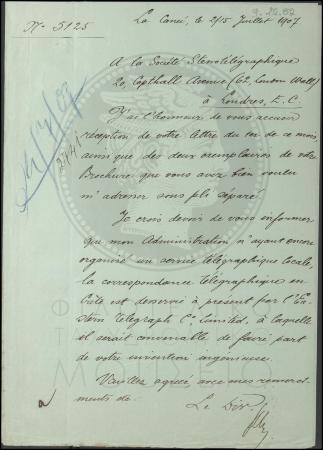 La Canée, le 2/15 Juillet 1907
No 5125
A la Société Sténotélégraphique
20, Copthall Avenue (62, London Wall)
à Londres, E.C.
J'ai l'honneur de vous accuser
réception de votre lettre du 1er de ce mois,
ainsi que des deux exemplaires de votre
Brochure que vous avez bien voulu
m'adresser sous pli séparé.
Je crois devoir de vous informer
que mon Administration n'ayant encore
organisé un service télégraphique locale,
la correspondance télégraphique en
Crète est desservi à présent par l'Ea-
stern Telegraph Co. Limited, à laquelle
il serait convenable de faire part
de votre invention ingénieuse.
Veuillez agréer, avec mes remerci-
ments de.
Le Dir.